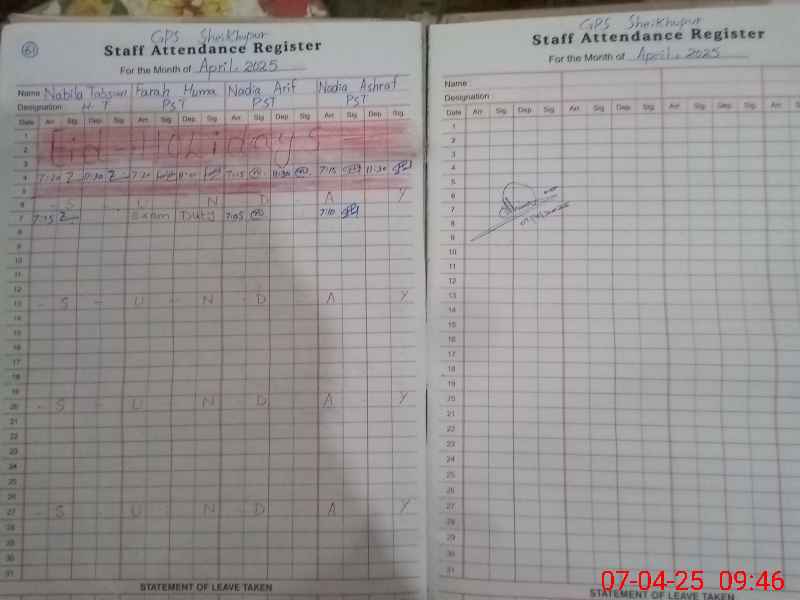 61
GPS Sheikhupur
Staff Attendance Register
For the Month of April, 2025
Name Nabila Tabsum Farah Huma Nadia Arif Nadia Ashraf
Designation H.T PST PST PST
Date Arr. Sig. Dep. Sig. Arr. Sig. Dep. Sig. Arr. Sig. Dep. Sig. Arr. Sig. Dep. Sig.
1
2 Eid Holidays
3
4 7:20 11:30 7:20 11:30 7:15 11:30 7:15 11:30
5
6 - S - U - N - D A Y
7 7:15 Exam Duty 7:05 7:10
8
9
10
11
12
13 - S - U - N - D A Y
14
15
16
17
18
19
20 - S - U - N - D A Y
21
22
23
24
25
26
27 - S - U - N - D A Y
28
29
30
31
STATEMENT OF LEAVE TAKEN
GPS Sheikhupur
Staff Attendance Register
For the Month of April, 2025
Name :
Designation :
Date Arr. Sig. Dep. Sig. Arr. Sig. Dep. Sig. Arr. Sig. Dep. Sig. Arr. Sig.
1
2
3
4
5
6
7
8
9
10
11
12
13
14
15
16
17
18
19
20
21
22
23
24
25
26
27
28
29
30
31
STATEMENT OF LEAVE TAKEN
07-04-25 09:46